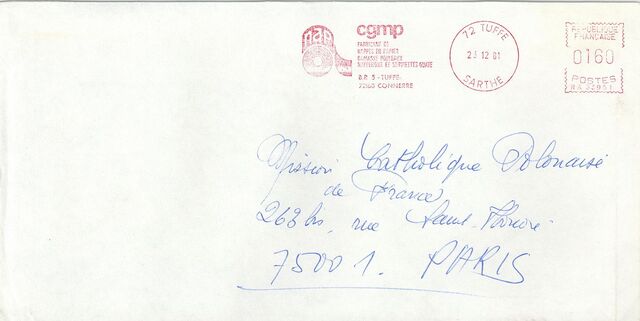 cgmp
FABRICANT DE
NAPPES EN PAPIER
DAMASSÉ
ET SERVIETTES OUATE
B.P. 5 - TUFFE
72160 CONNERRE
72 TUFFE
23 12 81
SARTHE
REPUBLIQUE
FRANÇAISE
0160
POSTES
Mission Catholique Polonaise
de France
263 bis, rue Saint-Honoré
75001. PARIS